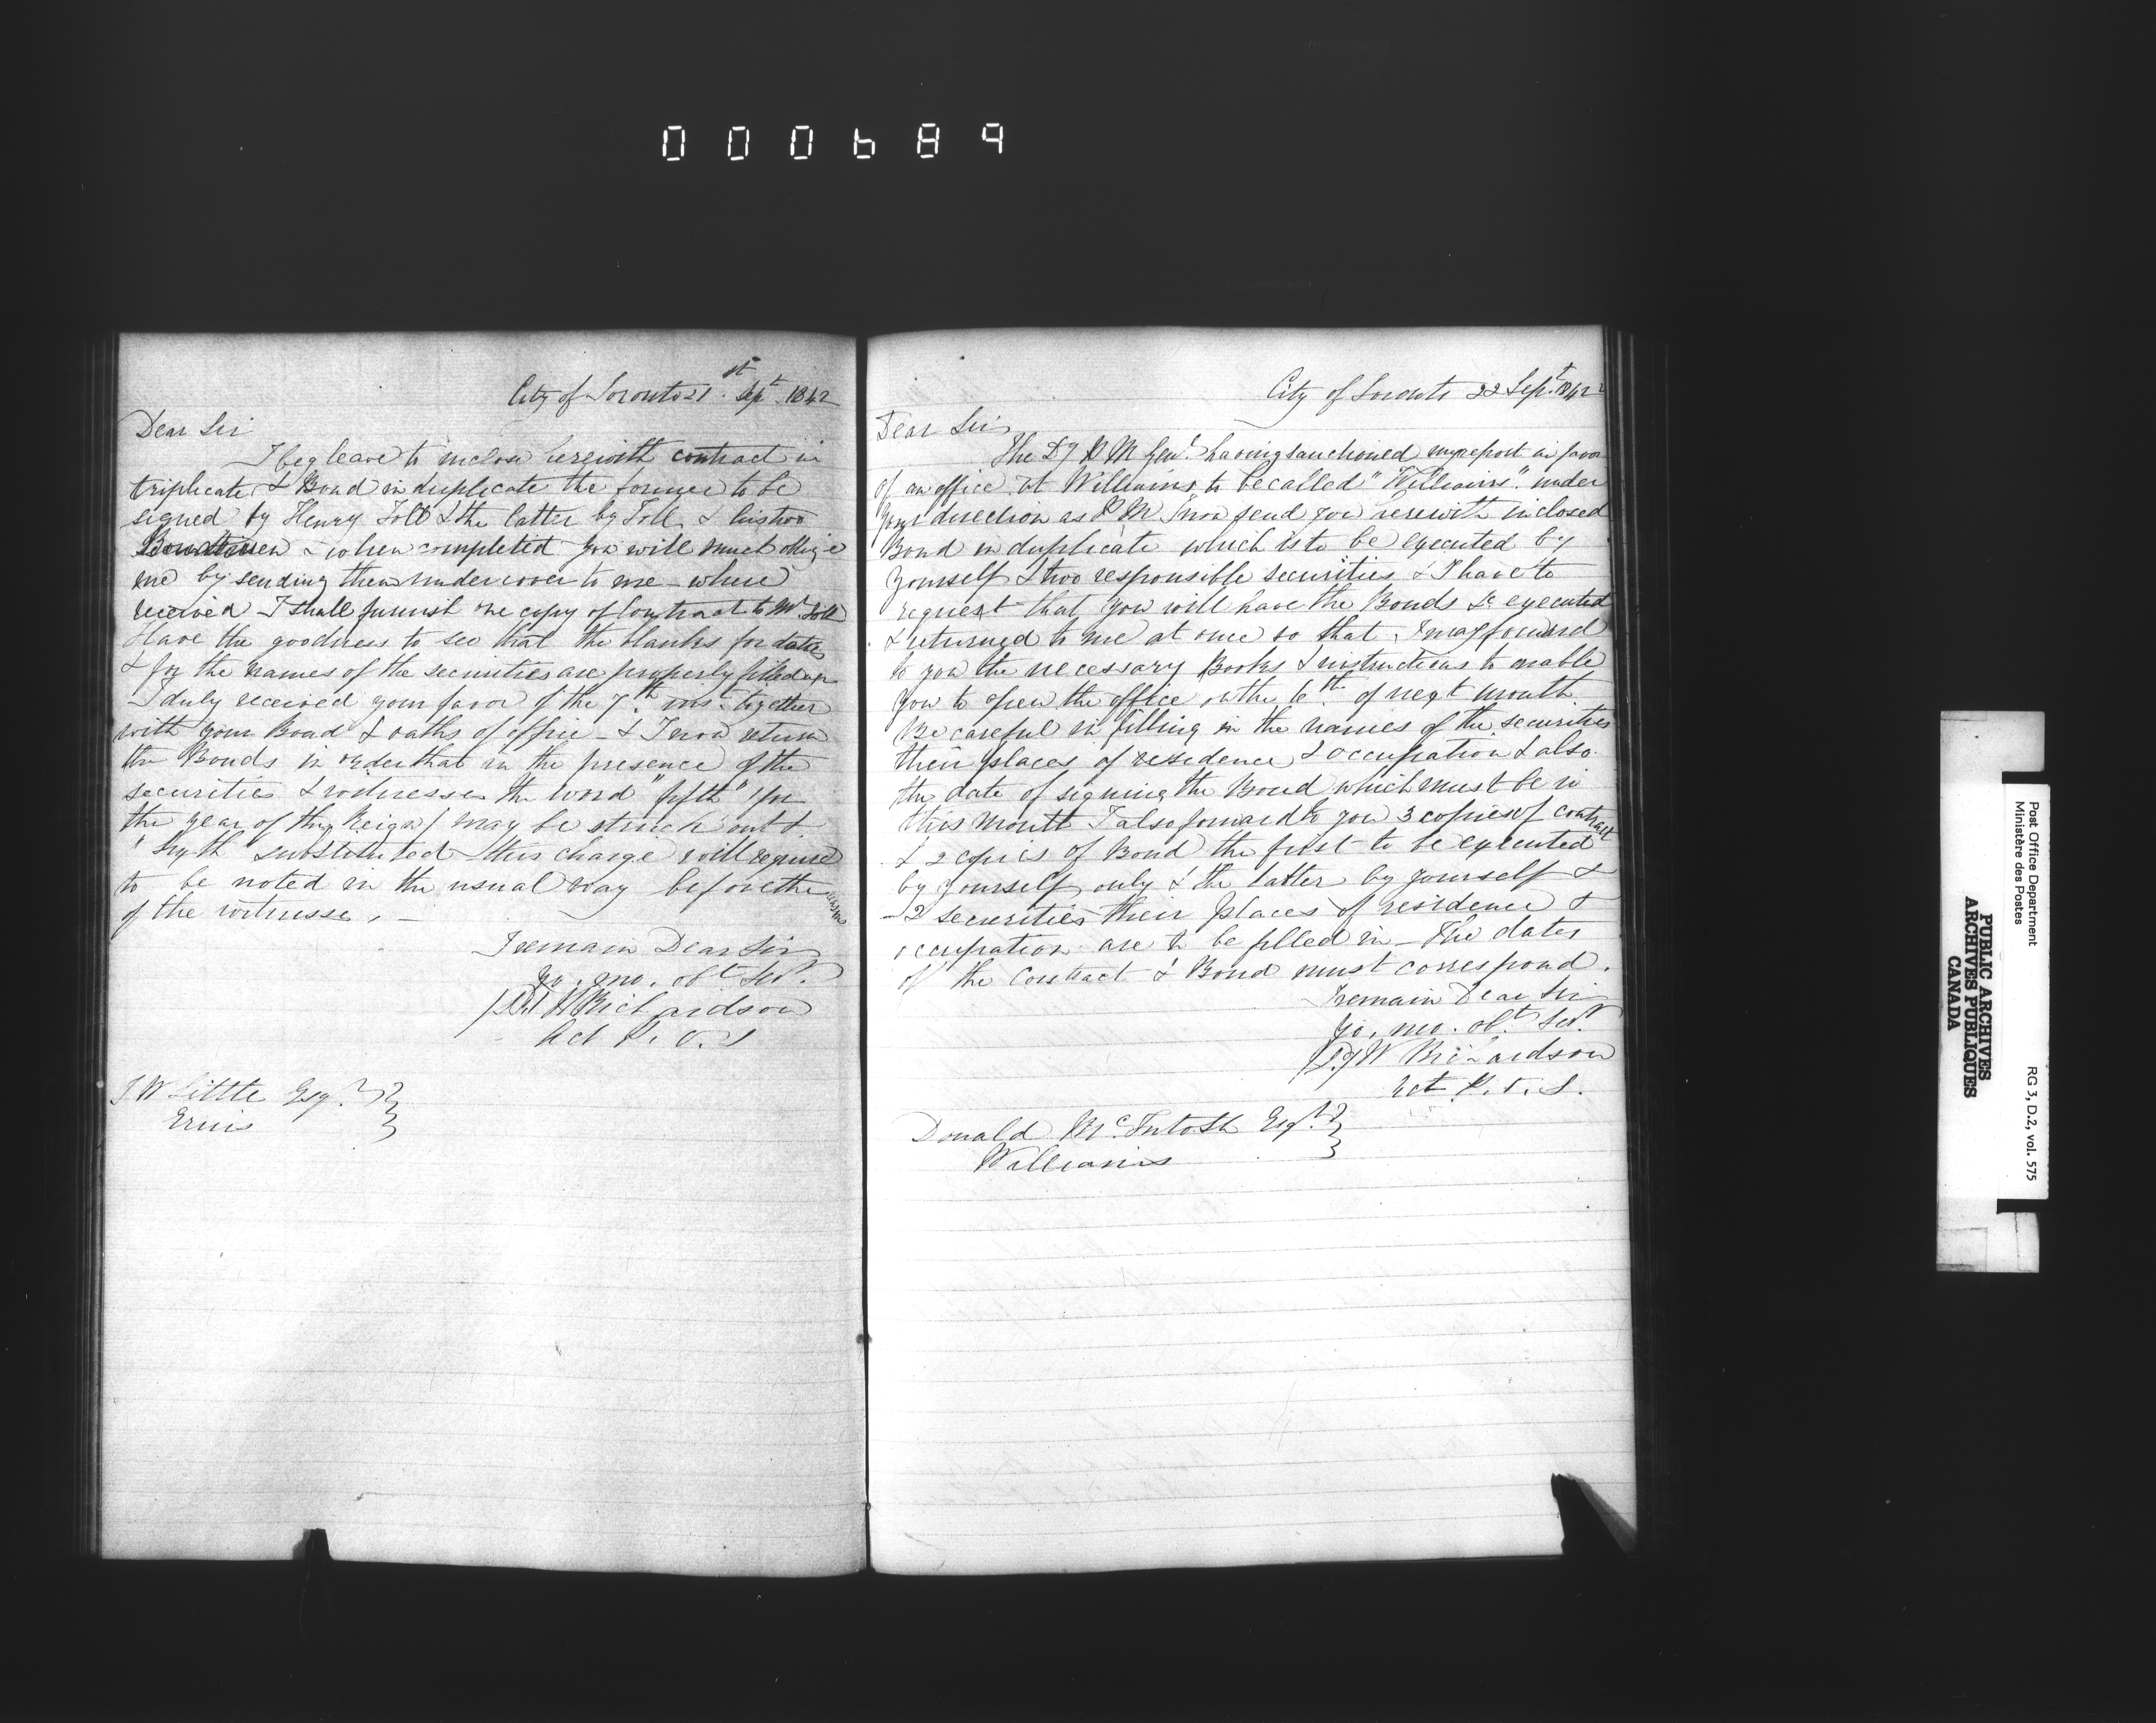 000689
City of Toronto 21st Sept 1842
Dear Sir
I beg leave to inclose herewith contract in
triplicate & Bond in duplicate the former to be
signed by Henry Toll & the latter by Toll & his two
Bondsmen & when completed you will much oblige
me by sending them under cover to me - when
received I shall furnish one copy of Contract to Mr Toll
Have the goodness to see that the blanks for dates
& for the names of the securities are properly filled up
I duly received your favor of the 7th inst together
with your Bond & oaths of office - & I now return
the Bonds in order that in the presence of the
securities & witnesses the word "fifth" (for
the year of the Reign) may be struck out &
"Sixth" substituted this change will require
to be noted in the usual way before the
of the witnesses. -
I remain Dear Sir
Yr. mo. obt Svt.
W H Richardson
Act P. O. S
J W Little Esqr
Erieus
City of Toronto 22 Sept. 1842
Dear Sir
The Dy P M Genl. having sanctioned my report in favor
of an office at Williams to be called "Williams" under
your direction as P M I now send you herewith inclosed
Bond in duplicate which is to be executed by
yourself & two responsible securities & I have to
request that you will have the Bonds &c executed
& returned to me at once so that I may forward
to you the necessary Books & instructions to enable
you to open the office on the 6th of next month
Be careful in filling in the names of the securities
their places of residence & occupation & also
the date of signing the Bond which must be in
this month I also forward to you 3 copies of contract
& 2 copies of Bond the first to be executed
by yourself only & the latter by yourself &
2 securities their places of residence &
occupation are to be filled in - The dates
of the Contract & Bond must correspond.
I remain Dear Sir
Yr. mo. obt Svt
W Richardson
Act P. O. S.
Donald McIntosh Esqr
Williams
Post Office Department
Ministère des Postes
RG 3, D.2, vol. 575
PUBLIC ARCHIVES
ARCHIVES PUBLIQUES
CANADA